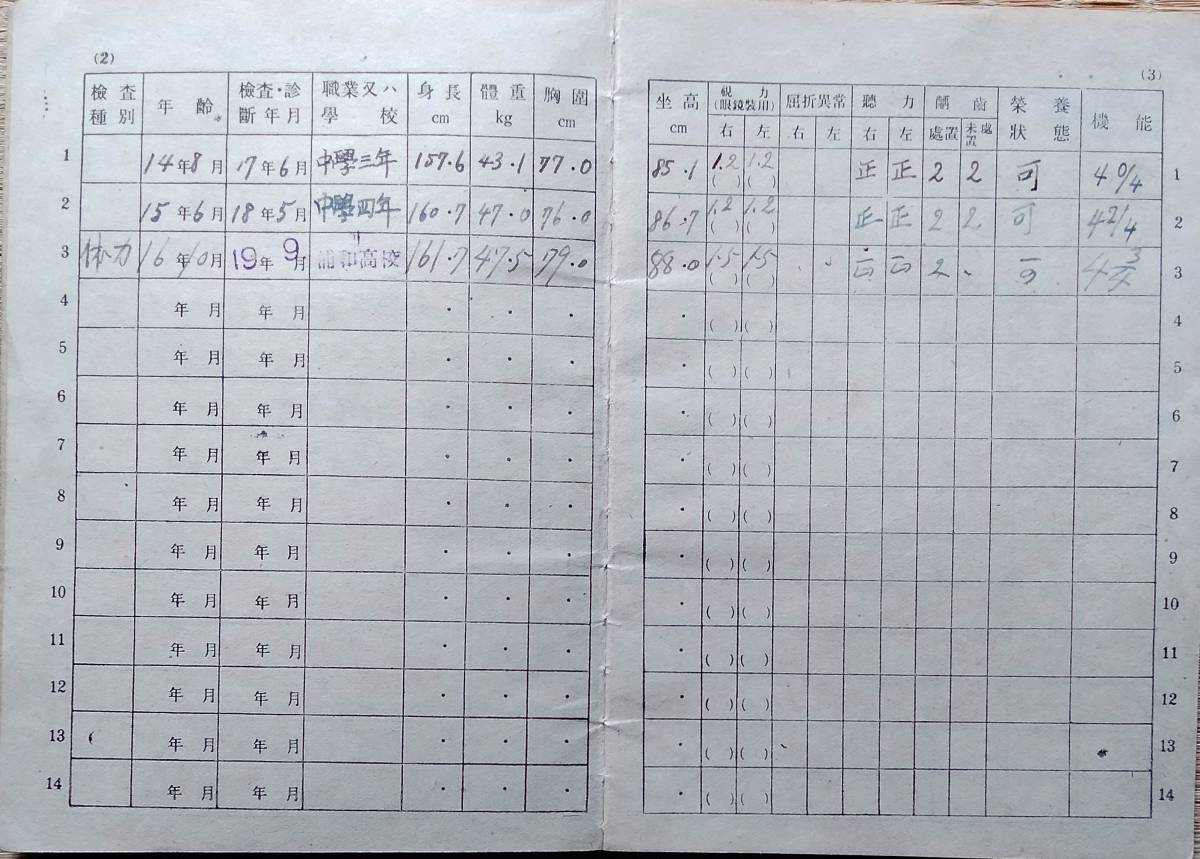 (2)
檢査種別 年齡 檢査・診斷年月 職業又ハ學校 身長cm 體重kg 胸圍cm
1 14年8月 17年6月 中學三年 157.6 43.1 77.0
2 15年6月 18年5月 中學四年 160.7 47.0 76.0
3 体力 16年10月 19年9月 浦和高校 161.7 47.5 79.0
4 年 月 年 月 . . .
5 年 月 年 月 . . .
6 年 月 年 月 . . .
7 年 月 年 月 . . .
8 年 月 年 月 . . .
9 年 月 年 月 . . .
10 年 月 年 月 . . .
11 年 月 年 月 . . .
12 年 月 年 月 . . .
13 年 月 年 月 . . .
14 年 月 年 月 . . .
(3)
坐高cm 視力(眼鏡裝用) 屈折異常 聽力 齲齒 榮養狀態 機能
右 左 右 左 右 左 處置 未處置
85.1 1.2 ( ) 1.2 ( ) 正 正 2 2 可 1
86.7 1.2 ( ) 1.2 ( ) 正 正 2 2 可 2
88.0 1.5 ( ) 1.5 ( ) 正 正 2 可 3
. ( ) ( ) 4
. ( ) ( ) 5
. ( ) ( ) 6
. ( ) ( ) 7
. ( ) ( ) 8
. ( ) ( ) 9
. ( ) ( ) 10
. ( ) ( ) 11
. ( ) ( ) 12
. ( ) ( ) 13
. ( ) ( ) 14